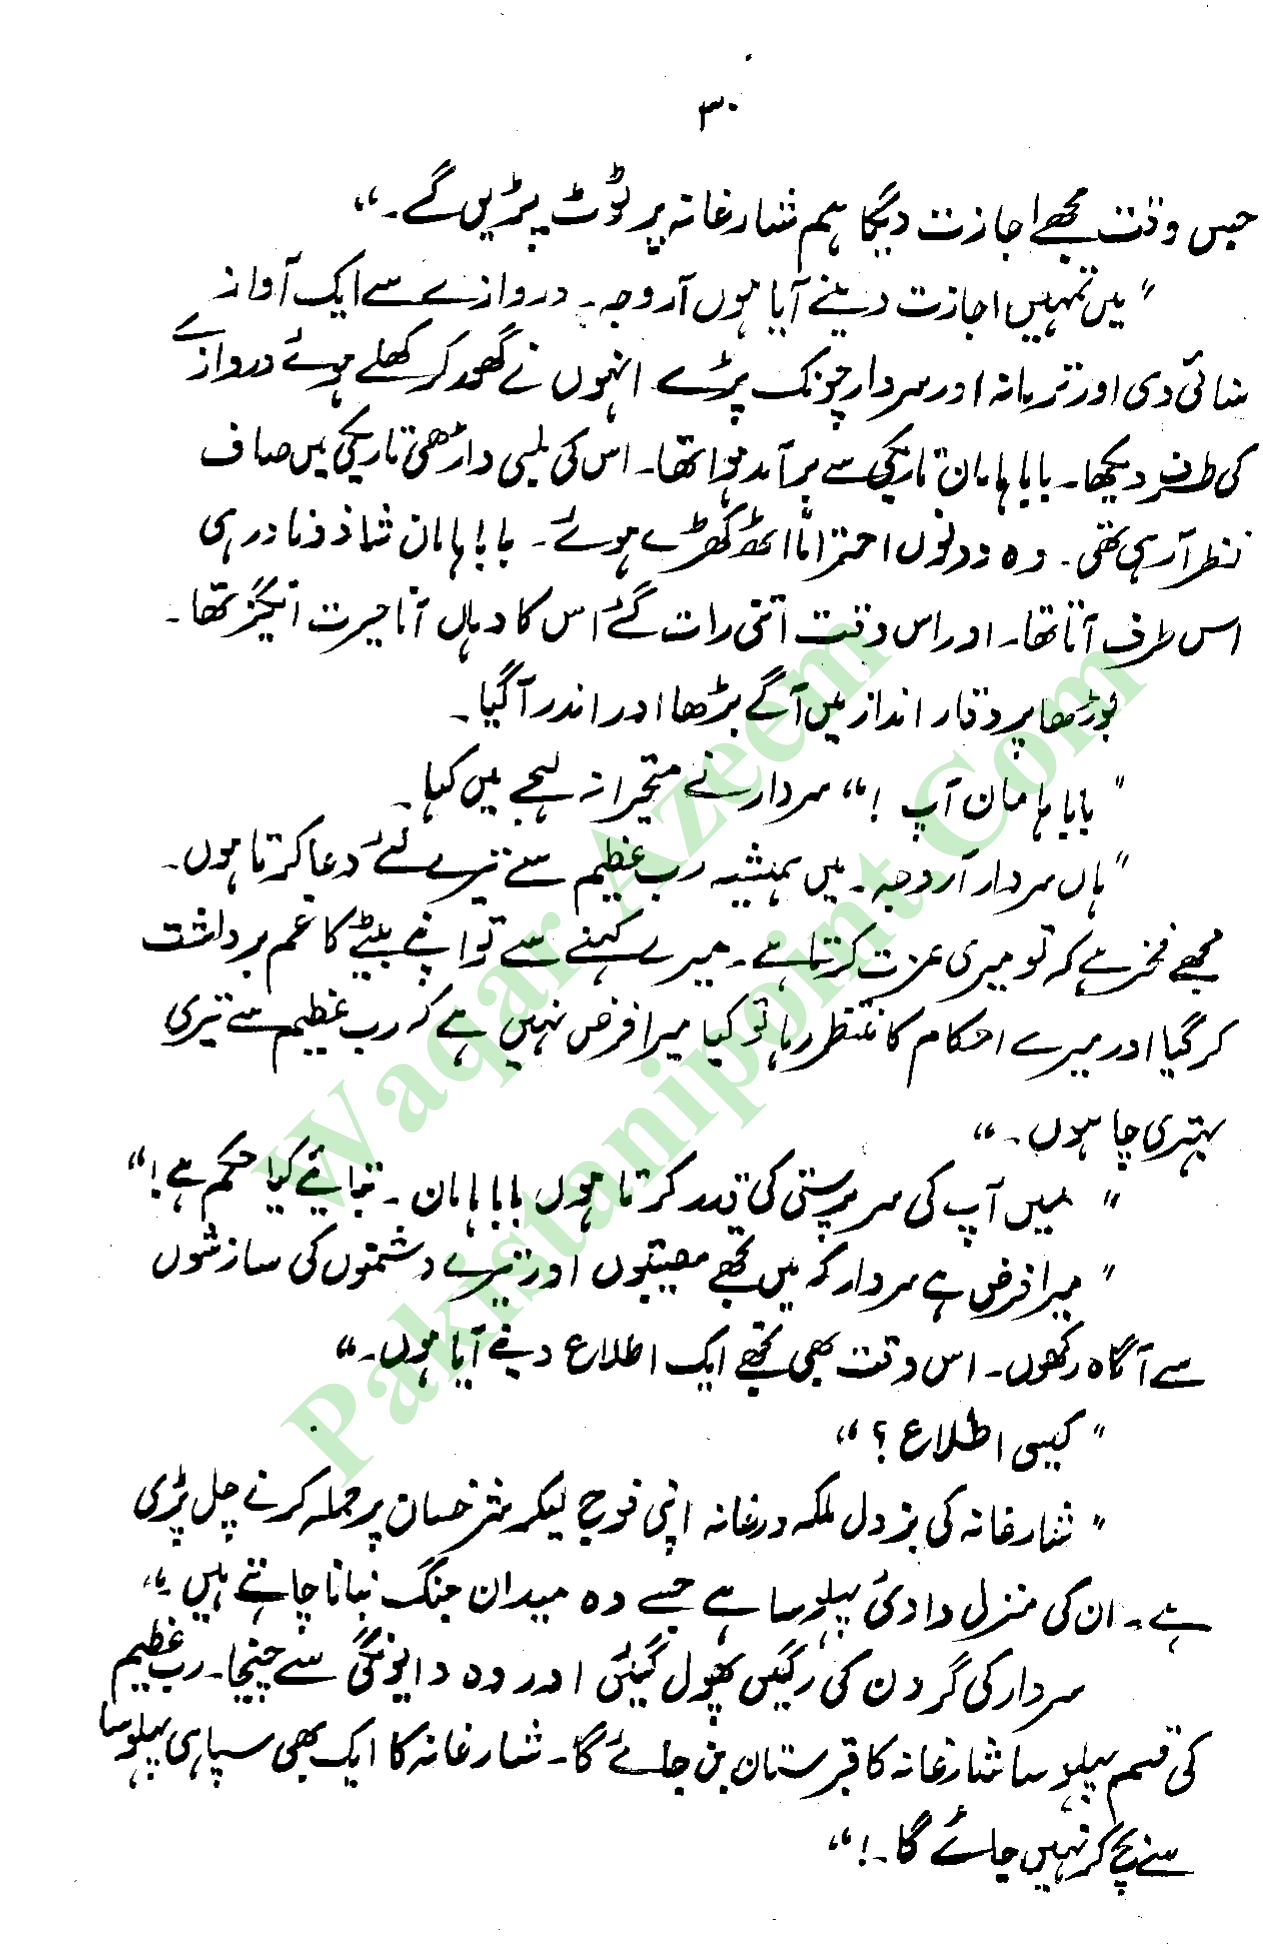 ۳۰
جس وقت مجھے اجازت دیگا ہم شارغانہ پر ٹوٹ پڑیں گے۔“
”میں تمہیں اجازت دینے آیا ہوں آروجہ۔ دروازے سے ایک آواز
سنائی دی اور ترمانہ اور سردار چونک پڑے انہوں نے گھوم کر کھلے ہوئے دروازے
کی طرف دیکھا۔ بابا ہامان تاریکی سے برآمد ہوا تھا۔ اس کی لمبی داڑھی تاریکی میں صاف
نظر آرہی تھی۔ وہ دونوں احتراماً اٹھ کھڑے ہوئے۔ بابا ہامان شاذ ونادر ہی
اس طرف آتا تھا۔ اور اس وقت اتنی رات گئے اس کا وہاں آنا حیرت انگیز تھا۔
بوڑھا پر وقار انداز میں آگے بڑھا اور اندر آگیا۔
”بابا ہامان آپ !“ سردار نے متحیرانہ لہجے میں کہا۔
”ہاں سردار آروجہ۔ میں ہمیشہ رب عظیم سے تیرے لئے دعا کرتا ہوں۔
مجھے فخر ہے کہ تو میری عزت کرتا ہے۔ میرے کہنے سے تو اپنے بیٹے کا غم برداشت
کر گیا اور میرے احکام کا منتظر رہا تو کیا میرا فرض نہیں ہے کہ رب عظیم سے تیری
بہتری چاہوں۔“
”میں آپ کی سرپرستی کی قدر کرتا ہوں بابا ہامان۔ بتائیے کیا حکم ہے !“
”میرا فرض ہے سردار کہ میں تجھے مصیبتوں اور تیرے دشمنوں کی سازشوں
سے آگاہ رکھوں۔ اس وقت بھی تجھے ایک اطلاع دینے آیا ہوں۔“
”کیسی اطلاع ؟“
”شارغانہ کی بزدل ملکہ درغانہ اپنی فوج لیکر پر حملہ کرنے چل پڑی
ہے۔ ان کی منزل وادئ پہلوسا ہے جسے وہ میدان جنگ بنانا چاہتے ہیں۔“
سردار کی گردن کی رگیں پھول گئیں اور وہ دیوانگی سے چیخا۔ رب عظیم
کی قسم پہلوسا شارغانہ کا قبرستان بن جائے گا۔ شارغانہ کا ایک بھی سپاہی پہلوسا
سے بچ کر نہیں جائے گا۔!“
Waqar Azeem
Pakistanipoint.Com